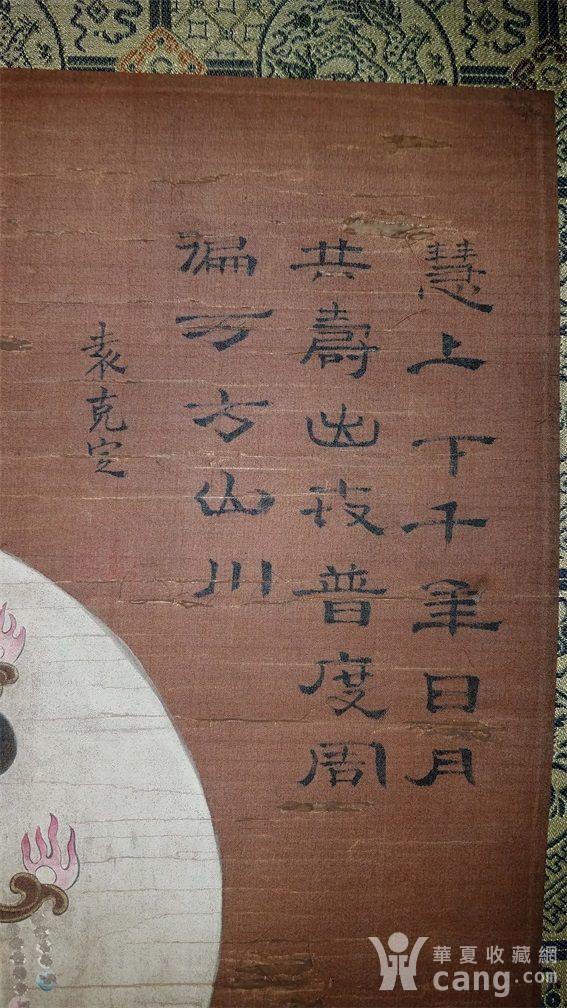 慧上下千年日月
共壽出没普度周
徧万方山川
袁克定
華夏收藏網
cang.com